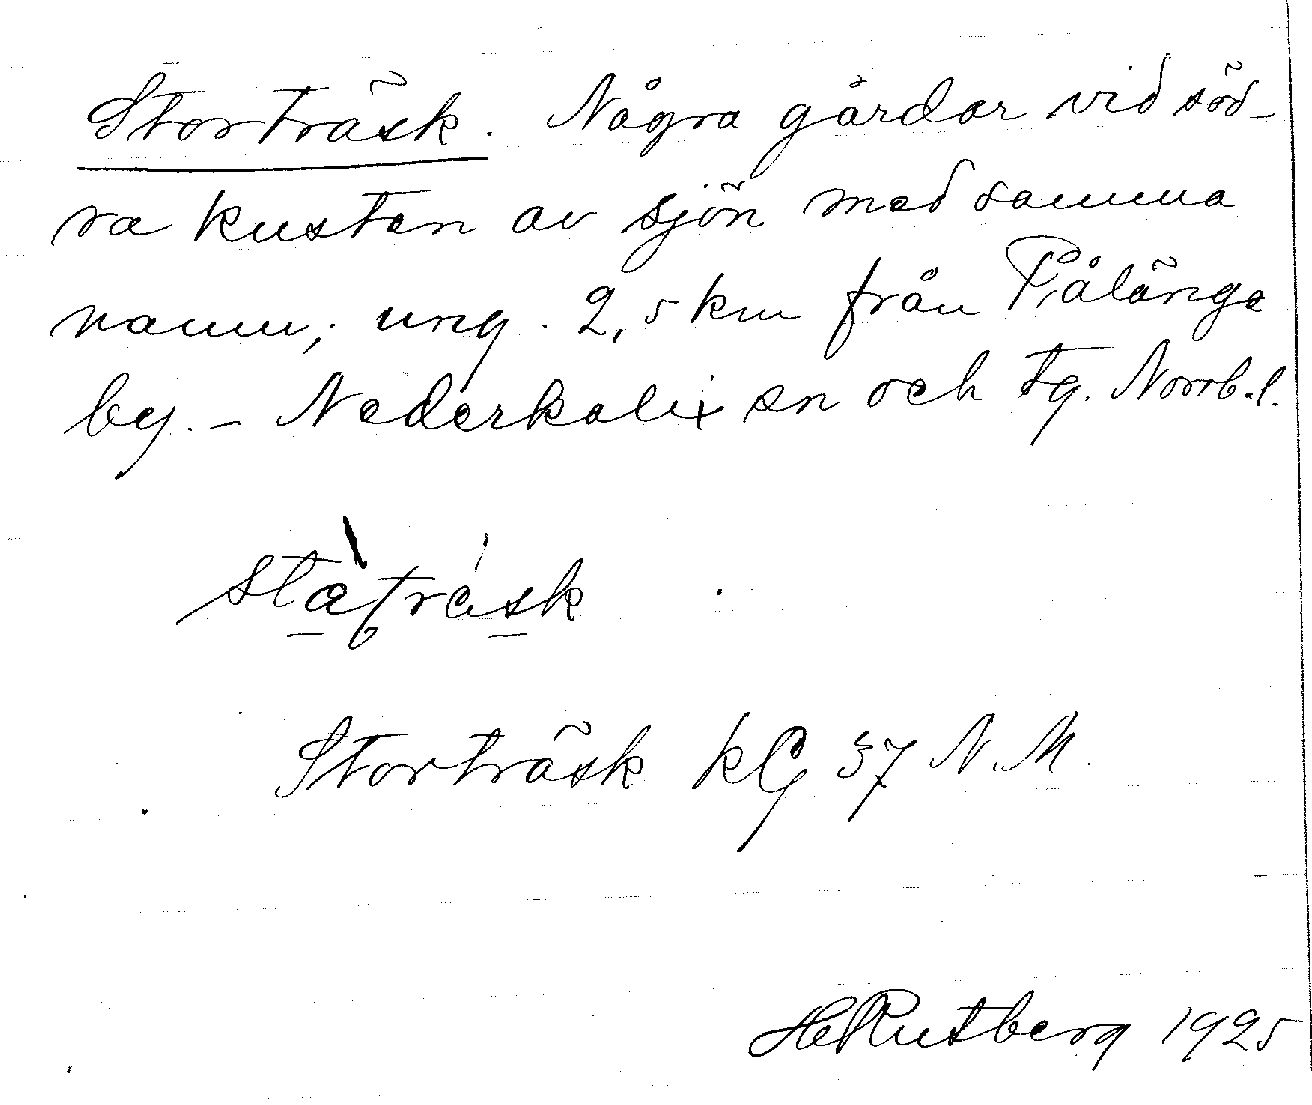 Storträsk. Några gårdar vid söd-
ra kusten av sjön med samma
namn, ung. 2,5 km från Pålänge
by. – Nederkalix sn och tg. Norrb. l.
Storträsk kG 37 N. M.
HeRutberg 1925